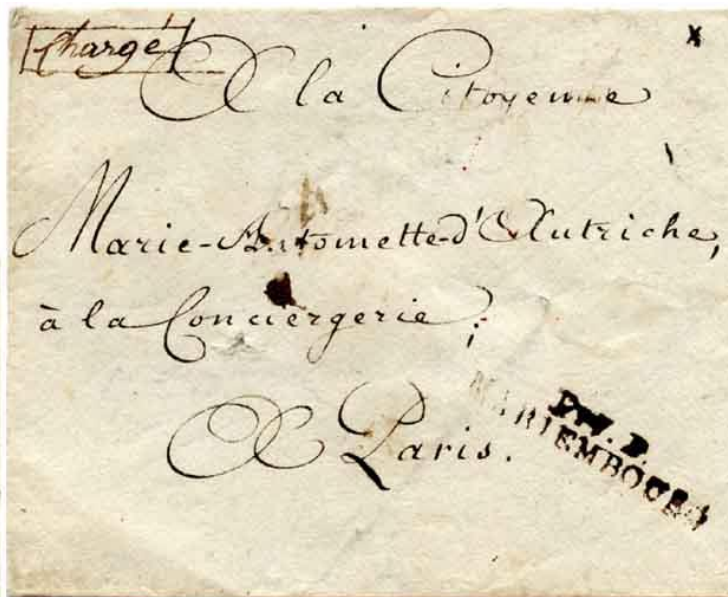 Chargé
A la Citoyenne
Marie-Antoinette-d'Autriche,
à la Conciergerie;
A Paris.
MARIEMBOURG